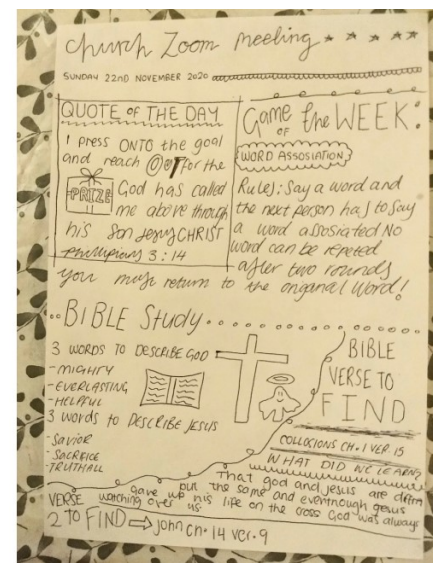 Church Zoom Meeting
SUNDAY 22ND NOVEMBER 2020
QUOTE of THE DAY
I press ONTO the goal
and reach OUT for the
PRIZE God has called
me above through
his son Jesus CHRIST
Philippians 3:14
Game OF the WEEK:
WORD ASSOCIATION
Rules: Say a word and
the next person has to say
a word assosiated No
word can be repeted
after two rounds
you must return to the original Word!
BIBLE Study
3 WORDS TO DESCRIBE GOD
- MIGHTY
- EVERLASTING
- HELPFUL
3 words to DESCRIBE JESUS
- SAVIOR
- SACRIFICE
- TRUTHALL
BIBLE
VERSE TO
FIND
COLLOSIONS CH.1 VER.15
WHAT DID WE LEARN?
That god and jesus are diffrnt
but the same and eventhough jesus
gave up his life on the cross God was always
watching over us.
VERSE
2 TO FIND ⇒ John ch.14 ver.9